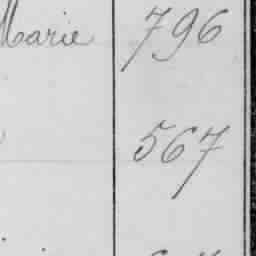 Marie 796
567